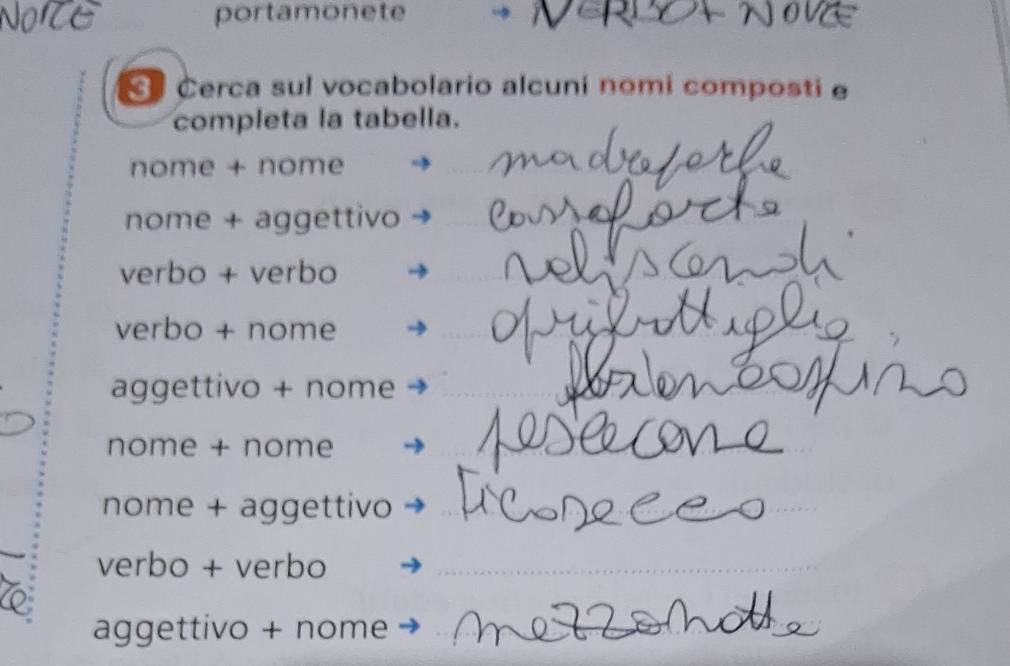 NOME portamonete → VERBO + NOME
3 Cerca sul vocabolario alcuni nomi composti e
completa la tabella.
nome + nome → madreperla
nome + aggettivo → cassaforte
verbo + verbo → saliscendi
verbo + nome → apribottiglie
aggettivo + nome → biancospino
nome + nome → pescecane
nome + aggettivo → ficosecco
verbo + verbo →
aggettivo + nome → mezzanotte